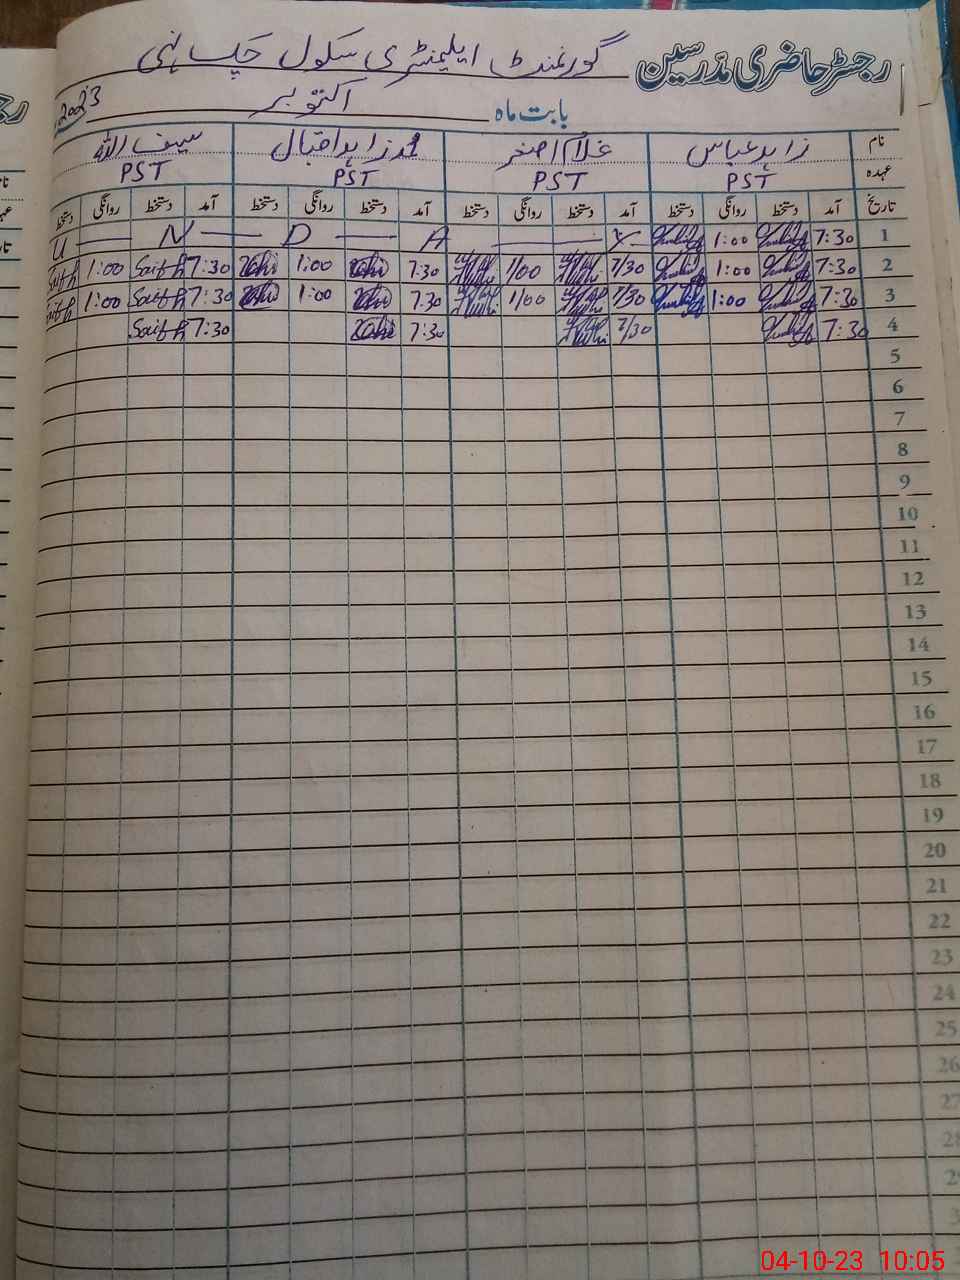 رجسٹر حاضری مدرسین گورنمنٹ ایلیمنٹری سکول
بابت ماہ اکتوبر 2023
نام زاہد عباس غلام اصغر محمد زاہد اقبال سیف اللہ
عہدہ PST PST PST PST
تاریخ آمد دستخط روانگی دستخط آمد دستخط روانگی دستخط آمد دستخط روانگی دستخط آمد دستخط روانگی دستخط
1 7:30 1:00 S U N D A Y
2 7:30 1:00 7/30 1/00 7:30 1:00 7:30 Saif 1:00 Saif
3 7:30 1:00 7/30 1/00 7:30 1:00 7:30 Saif 1:00 Saif
4 7:30 7/30 7:30 7:30 Saif
5
6
7
8
9
10
11
12
13
14
15
16
17
18
19
20
21
22
23
24
25
26
27
28
29
04-10-23 10:05